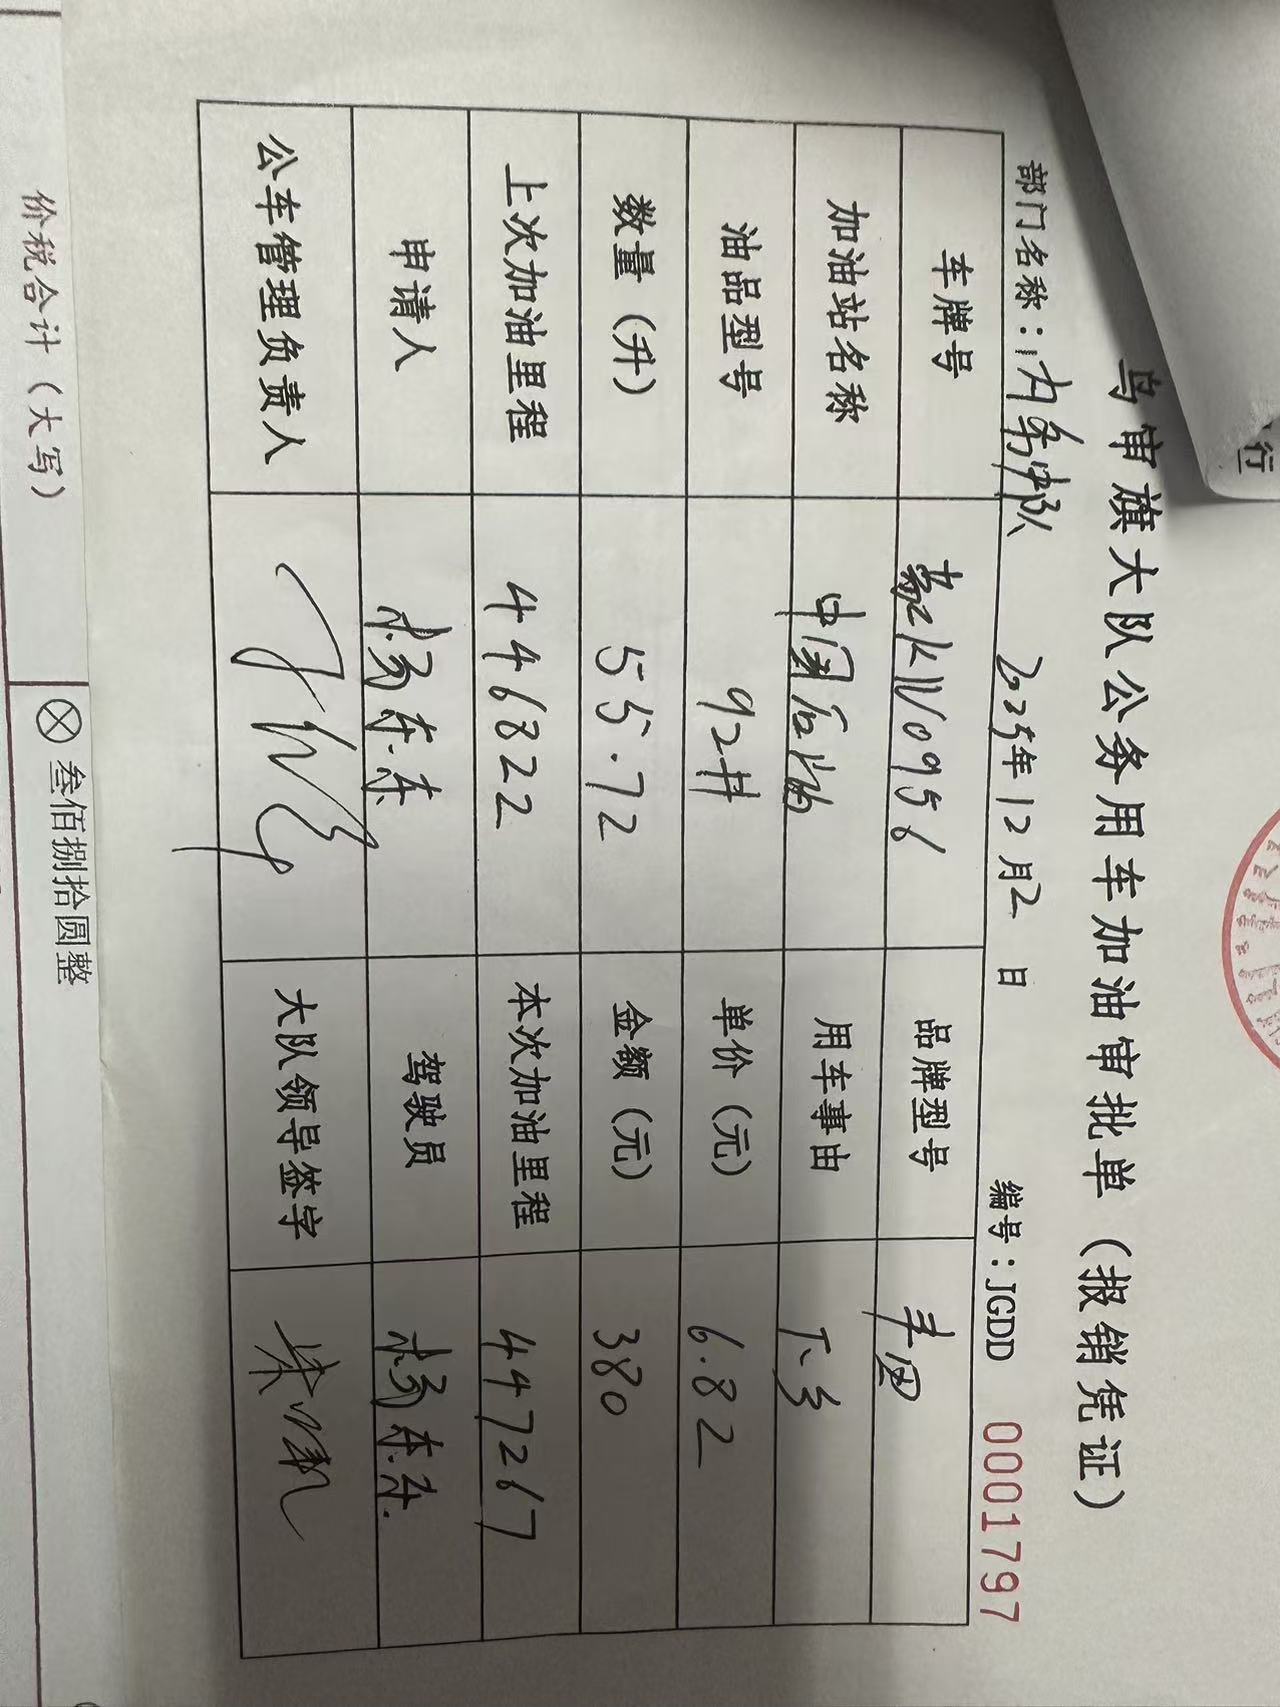 行
乌审旗大队公务用车加油审批单（报销凭证）
部门名称：内务中队 2025年12月2日 编号：JGDD 0001797
车牌号 蒙K11095 品牌型号 丰田
加油站名称 中国石油 用车事由 下乡
油品型号 92# 单价（元） 6.82
数量（升） 55.72 金额（元） 380
上次加油里程 446822 本次加油里程 447267
申请人 杨东东 驾驶员 杨东东
公车管理负责人 大队领导签字
价税合计（大写） ⊗叁佰捌拾圆整